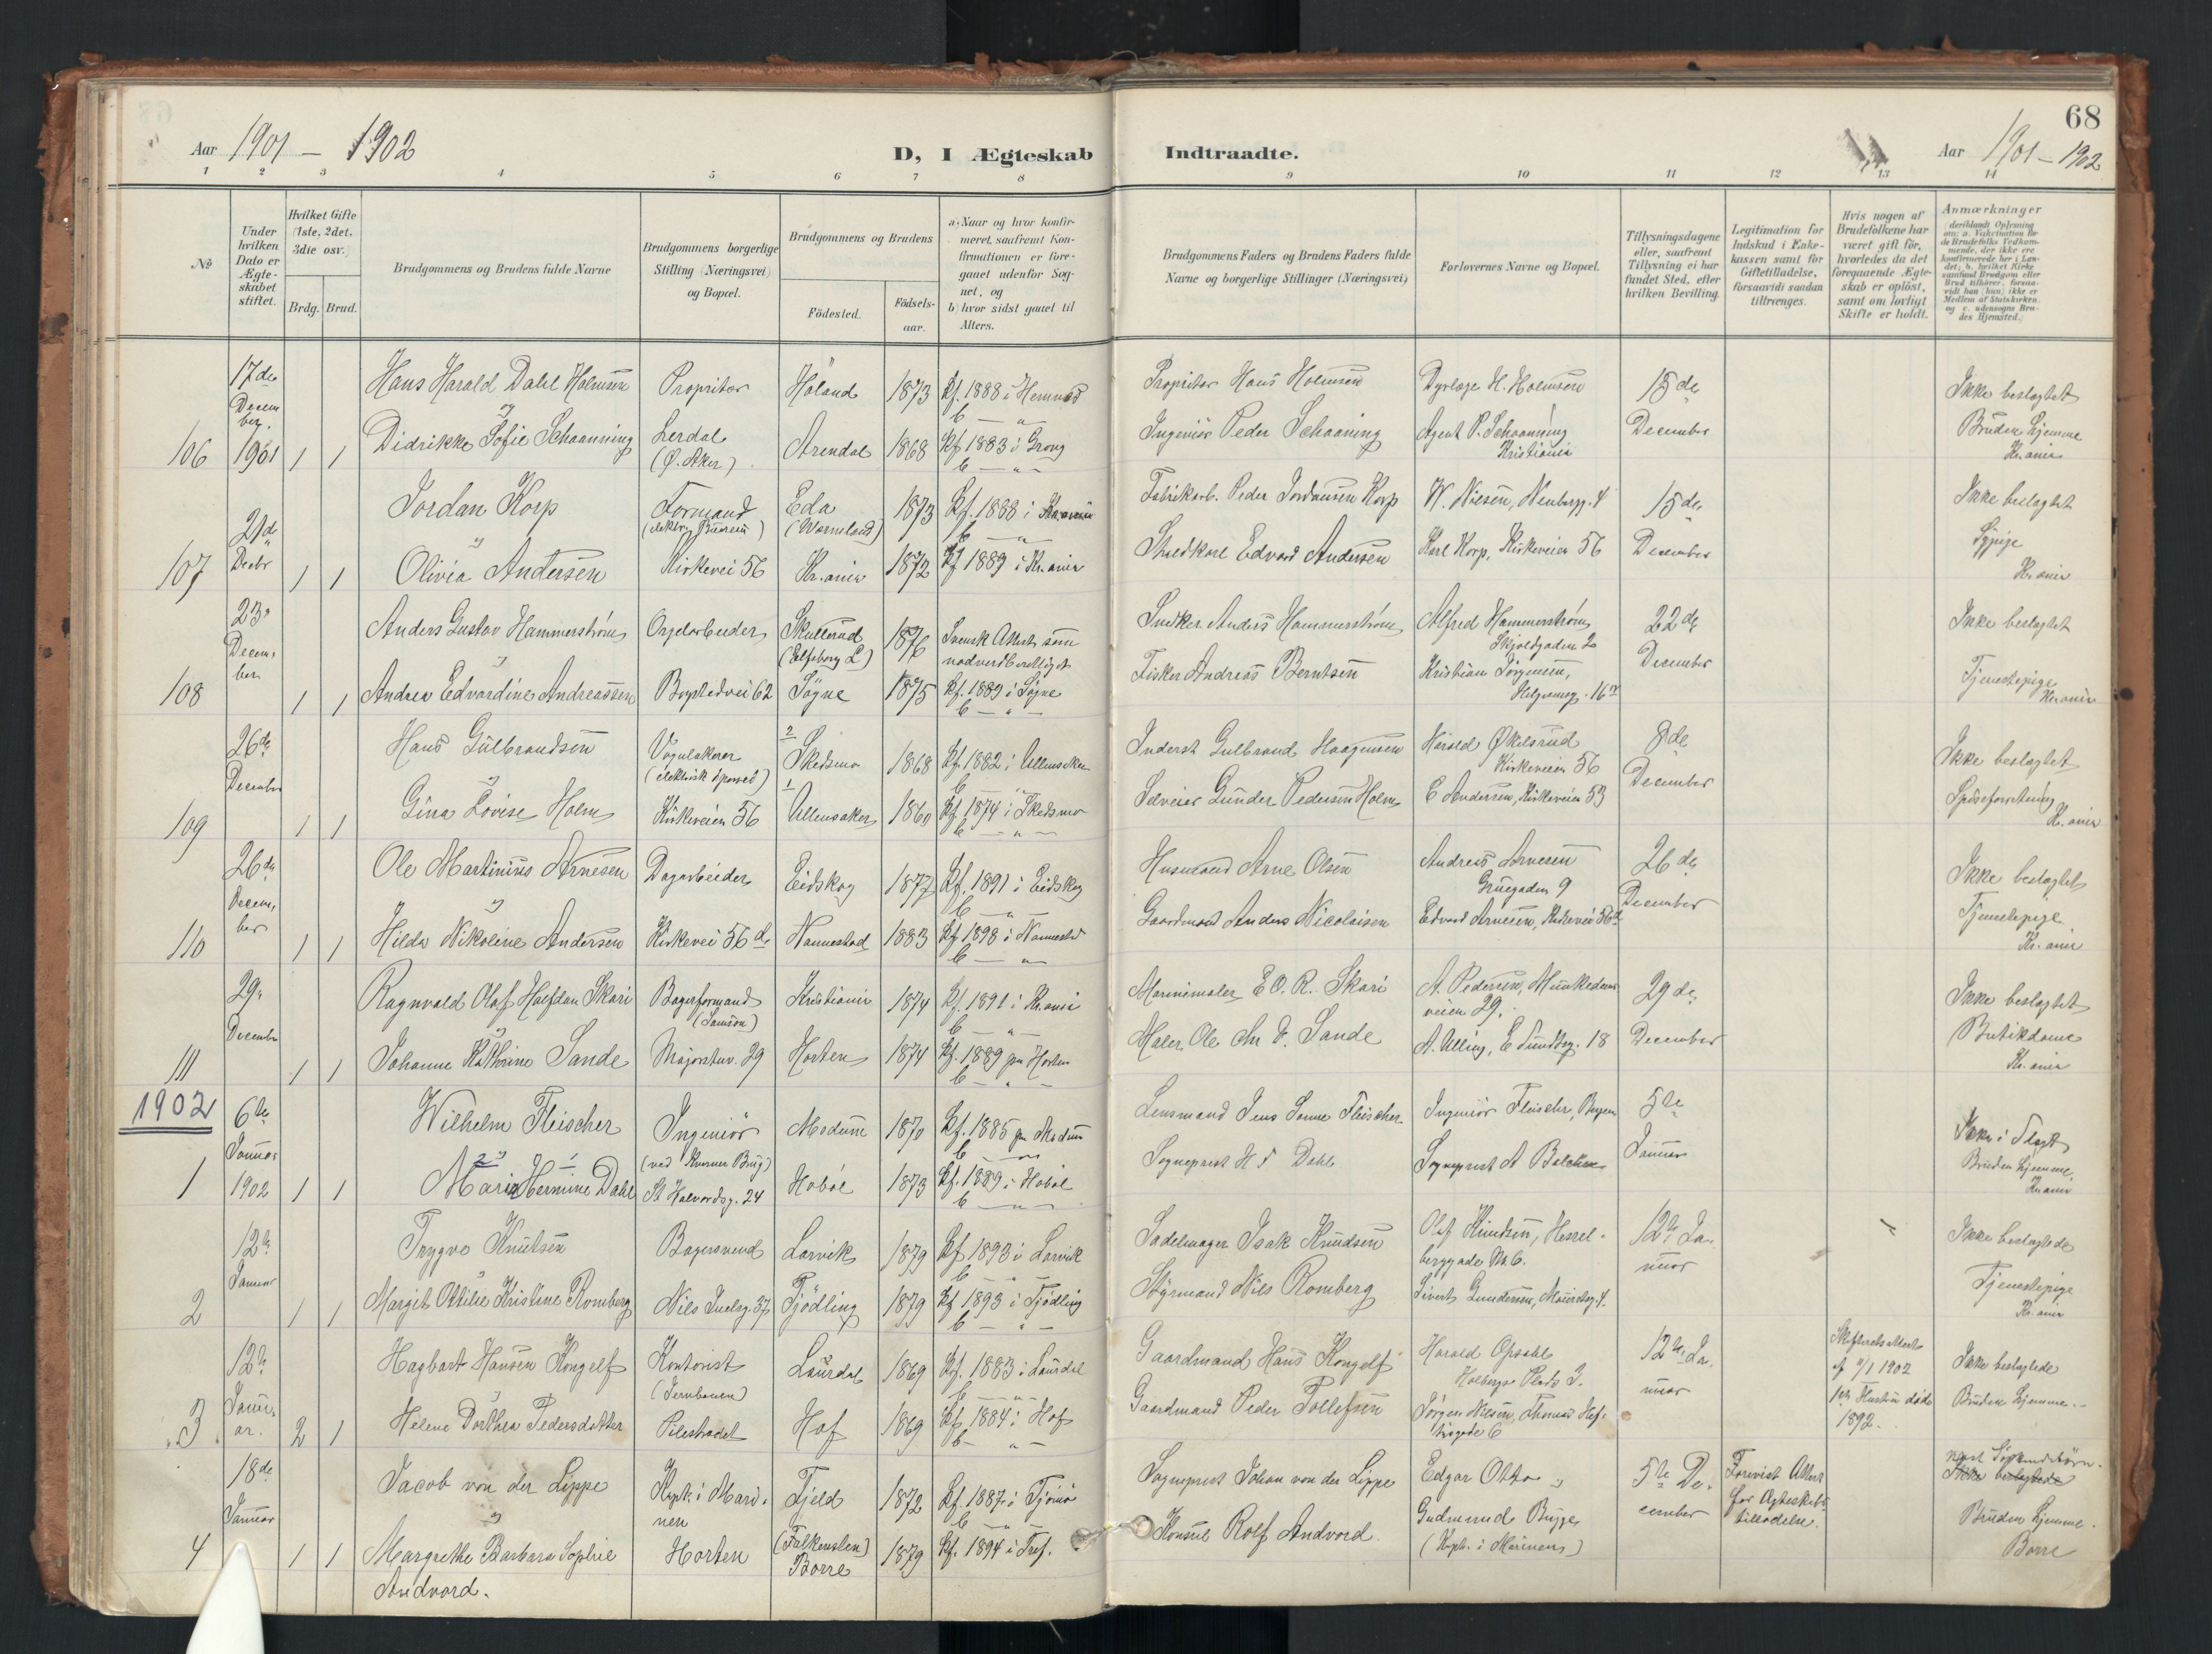 68
Aar 1901 - 1902
D, I Ægteskab Indtraadte.
Aar 1901 - 1902
1 2 3 4 5 6 7 8 9 10 11 12 13 14
No
Under hvilken Dato er Ægteskabet stiftet.
Hvilket Gifte (1ste, 2det, 3die osv.)
Brdg. Brud.
Brudgommens og Brudens fulde Navne
Brudgommens borgerlige Stilling (Næringsvei) og Bopæl.
Brudgommens og Brudens
Födested.
Födsels-aar.
a) Naar og hvor konfir-
meret, saafremt Kon-
firmationen er fore-
gaaet udenfor Sog-
net, og
b) hvor sidst gaaet til
Alters.
Brudgommens Faders og Brudens Faders fulde
Navne og borgerlige Stillinger (Næringsvei)
Forlovernes Navne og Bopæl.
Tillysningsdagene
eller, saafremt
Tillysning ei har
fundet Sted, efter
hvilken Bevilling.
Legitimation for
Indskud i Enke-
kassen samt for
Giftetilladelse,
forsaavidt saadan
tiltrænges.
Hvis nogen af
Brudefolkene har
været gift för,
hvorledes da det
foregaaende Ægte-
skab er oplöst,
samt om lovligt
Skifte er holdt.
Anmærkninger
(deriblandt Oplysning
om: a. Vakcination for
de Brudefolks Vedkom-
mende, der ikke ere
konfirmerede her i Lan-
det; b. hvilket Kirke-
samfund Brudgom eller
Brud tilhører, forsaa-
vidt han (hun) ikke er
Medlem af Statskirken.
og c. udensogns Bru-
des Hjemsted.)
17de Decem ber. Hans Harald Dahl Holmsen Propritær Höland 1873 Kf. 1888 i Hemnæs Propritær Hans Holmsen Dyrlæge H. Holmsen 15de Ikke beslægtet
106 1901 1 1 Didrikke Sofie Schaanning Lerdal (Ø. Aker) Arendal 1868 Kf 1883 i Grong Ingeniör Peder Schaaning Agent P. Schaanning Kristiania December Bruden hjemme Kr.ania
21de Jordan Korp Formand Eda 1873 Kf. 1888 i Kr.ania Fabrikarb. Peder Jordansen Korp W. Nilsen, 15de Ikke beslægtet
107 Decbr 1 1 Olivia Andersen Kirkevei 56 Kr.ania 1872 Kf 1889 i Kr.ania Edvard Andersen Karl Korp, Kirkeveien 56 December Sypige Kr.ania
23de Decem ber Anders Gustav Hammerström Skallerud (Elfsborg L) 1876 Svensk Attest som nadverdberettiget Snedker Anders Hammerström Alfred Hammerström, Skjoldgaden 2 22de Ikke beslægtet
108 1 1 Andrea Edvardine Andreassen Bogstadvei 62 Sögne 1875 Kf. 1889 i Sögne Fisker Andreas Berntsen Kristian Jörgensen, December Tjenestepige Kr.ania
26de December Hans Gulbrandsen Vognlakerer (elektrisk Sporvei) 2 Skedsmo 1868 Kf. 1882 i Ullensaker Inderst Gulbrand Haagensen Harald Økelsrud Kirkeveien 56 8de Ikke beslægtet
109 1 1 Gina Lovise Holm Kirkeveien 56 1 Ullensaker 1860 Kf 1874 i Skedsmo Selveier Gunder Pedersen Holm E Andersen, Kirkeveien 53 December Spiseforretning Kr.ania
26de Decem ber Ole Martinius Arnesen Dagarbeider Eidskog 1877 Kf. 1891 i Eidskog Husmand Arne Olsen Andreas Arnesen Gruegaden 9 26de Ikke beslægtet
110 1 1 Hilda Nikoline Andersen Kirkevei 56 d Nannestad 1883 Kf 1898 i Nannestad Gaardmand Anders Nicolaisen Edvard Arnesen, Kirkevei 56d December Tjenestepige Kr.ania
29de December Ragnvald Olaf Halfdan Skari Bagerformand (Samson) Kristiania 1874 Kf. 1891 i Kr.ania Marinemaler E.O.R. Skari A. Pedersen, Munkedams veien 29. 29de Ikke beslægtet
111 1 1 Johanne Kathrine Sande Majorstuv. 29 Horten 1874 Kf. 1889 paa Horten Maler Ole Chr. Sande A. Alling, E Sundtsg. 18 December Butikdame Kr.ania
1902
6te Januar Wilhelm Fleischer Ingeniör Modum 1870 Kf. 1885 paa Modum Lensmand Jens Sonne Fleischer Ingeniör Fleischer, Bergen 5te Ikke i Slægt
1 1902 1 1 Maria Hermine Dahl St Halvardsg. 24 Hoböl 1873 Kf. 1889 i Hoböl Sogneprest H F Dahl Sogneprest A Balchen Januar Bruden hjemme, Kr.ania
12te Januar Trygve Knutsen Bagersvend Larvik 1879 Kf 1893 i Larvik Sadelmager Isak Knudsen Olaf Knudsen, Hessel-berggade No 6. 12te Ja-nuar Ikke beslægtede
2 1 1 Margit Ottilie Kristine Romberg Nils Juelsg. 37 Tjödling 1879 Kf 1893 i Tjödling Styrmand Nils Romberg Sivert Gundersen, Tjenestepige Kr.ania
12te Januar. Hagbart Hansen Kongelf Kontorist (Jernbanen) Laurdal 1869 Kf. 1883 i Laurdal Gaardmand Hans Kongelf Harald Opsahl Holbergs Plads 3. 12te Ja-nuar Skifterets Attest af 1902 Ikke beslægtede
3 2 1 Helene Dorthea Pedersdatter Pilestrædet Hof 1869 Kf. 1884 i Hof Gaardmand Peder Tollefsen Jörgen Nilsen, Thomas Hef-tiesgade 6 1ste Hustru döde 1892. Bruden hjemme.
18de Januar Jacob von der Lippe Kapt. i Mari-nen Fjeld 1872 Kf. 1887 i Tjömö Sogneprest Johan von der Lippe Edgar Otto 5te De-cember Forevist Attest for Ægteskabs tilladelse. Næst Södskendebörn. Ikke beslægtede
4 1 1 Margrethe Barbara Sophie Andvord. Horten (Falkensten) Borre 1879 Kf. 1894 i Tref. Konsul Rolf Andvord Gudmund Bugge (Kapt. i Marinen) Bruden hjemme. Borre